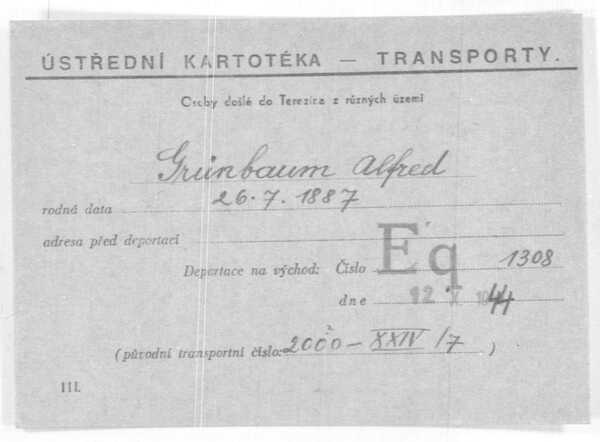 ÚSTŘEDNÍ KARTOTÉKA — TRANSPORTY.
Osoby došlé do Terezína z různých území
Grünbaum Alfred
rodná data 26.7.1887
adresa před deportací
Deportace na východ: Číslo Eq 1308
dne 12 X 1944
(původní transportní číslo: 2000 - XXIV/7 )
III.